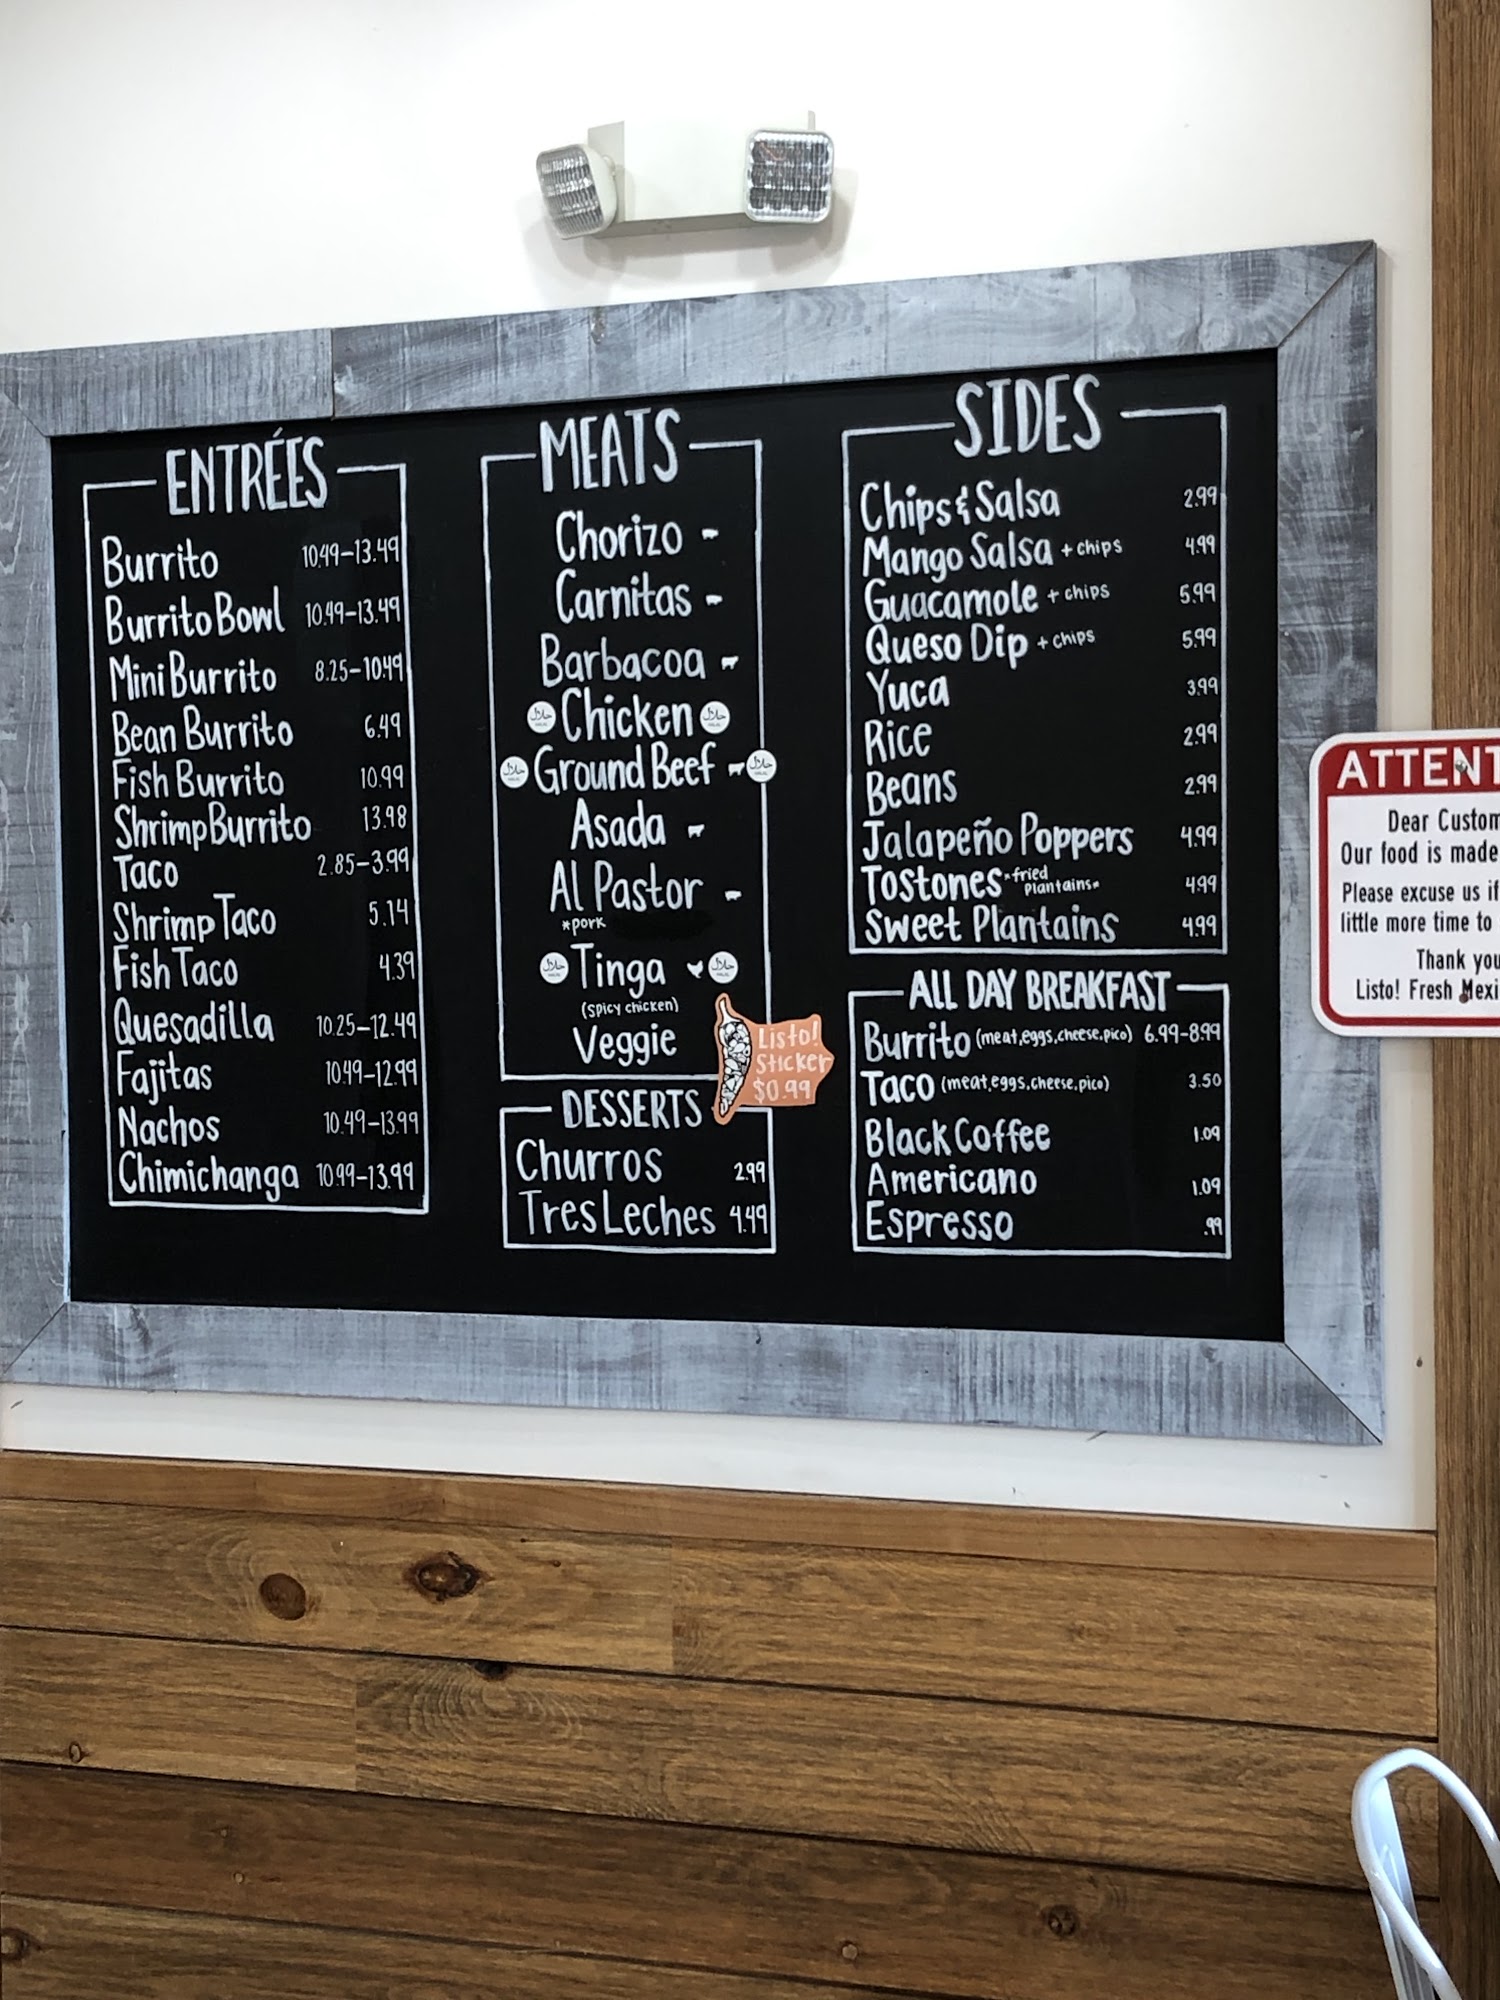 ENTRÉES
Burrito 10.49-13.49
Burrito Bowl 10.49-13.49
Mini Burrito 8.25-10.49
Bean Burrito 6.49
Fish Burrito 10.99
Shrimp Burrito 13.98
Taco 2.85-3.99
Shrimp Taco 5.14
Fish Taco 4.39
Quesadilla 10.25-12.49
Fajitas 10.49-12.99
Nachos 10.49-13.99
Chimichanga 10.99-13.99
MEATS
Chorizo
Carnitas
Barbacoa
حلال HALAL Chicken حلال HALAL
حلال HALAL Ground Beef حلال HALAL
Asada
Al Pastor
*pork
حلال HALAL Tinga حلال HALAL
(spicy chicken)
Veggie
Listo!
Sticker
$0.99
DESSERTS
Churros 2.99
Tres Leches 4.49
SIDES
Chips & Salsa 2.99
Mango Salsa + chips 4.99
Guacamole + chips 5.99
Queso Dip + chips 5.99
Yuca 3.99
Rice 2.99
Beans 2.99
Jalapeño Poppers 4.99
Tostones *fried plantains* 4.99
Sweet Plantains 4.99
ALL DAY BREAKFAST
Burrito (meat, eggs, cheese, pico) 6.99-8.99
Taco (meat, eggs, cheese, pico) 3.50
Black Coffee 1.09
Americano 1.09
Espresso .99
ATTENT
Dear Custom
Our food is made
Please excuse us if
little more time to
Thank you
Listo! Fresh Mexi